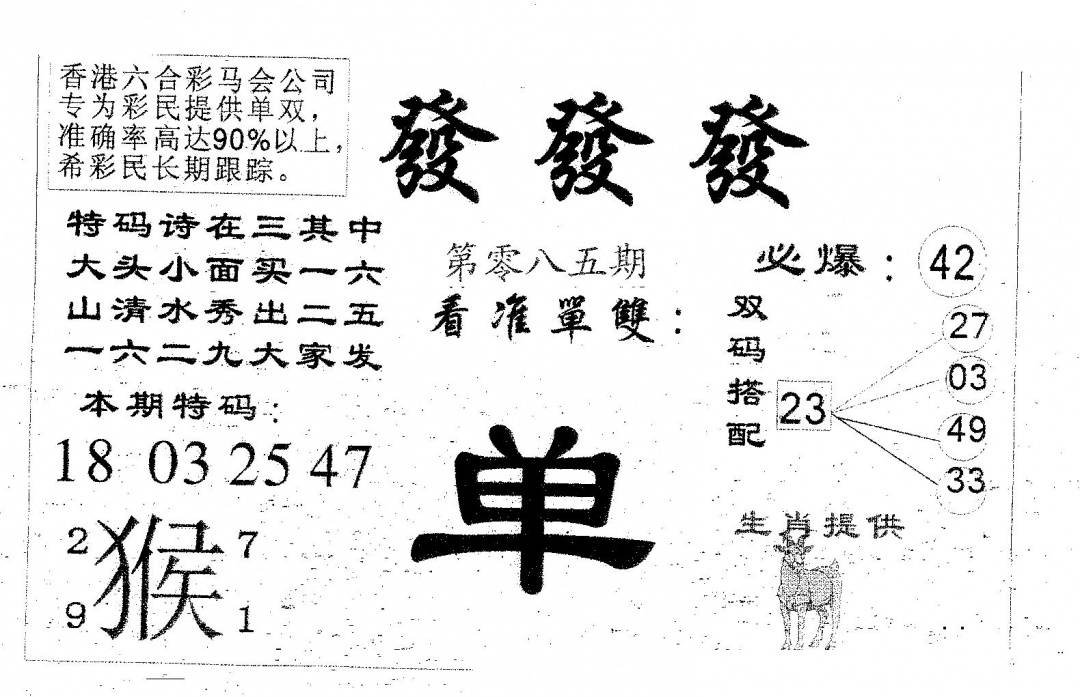 香港六合彩马会公司
专为彩民提供单双，
准确率高达90%以上，
希彩民长期跟踪。
發 發 發
特码诗在三其中
大头小面买一六
山清水秀出二五
一六二九大家发
本期特码：
18 03 25 47
2 7
猴
9 1
第零八五期
看准單雙：
单
必爆：42
双码搭配
23
27
03
49
33
生肖提供